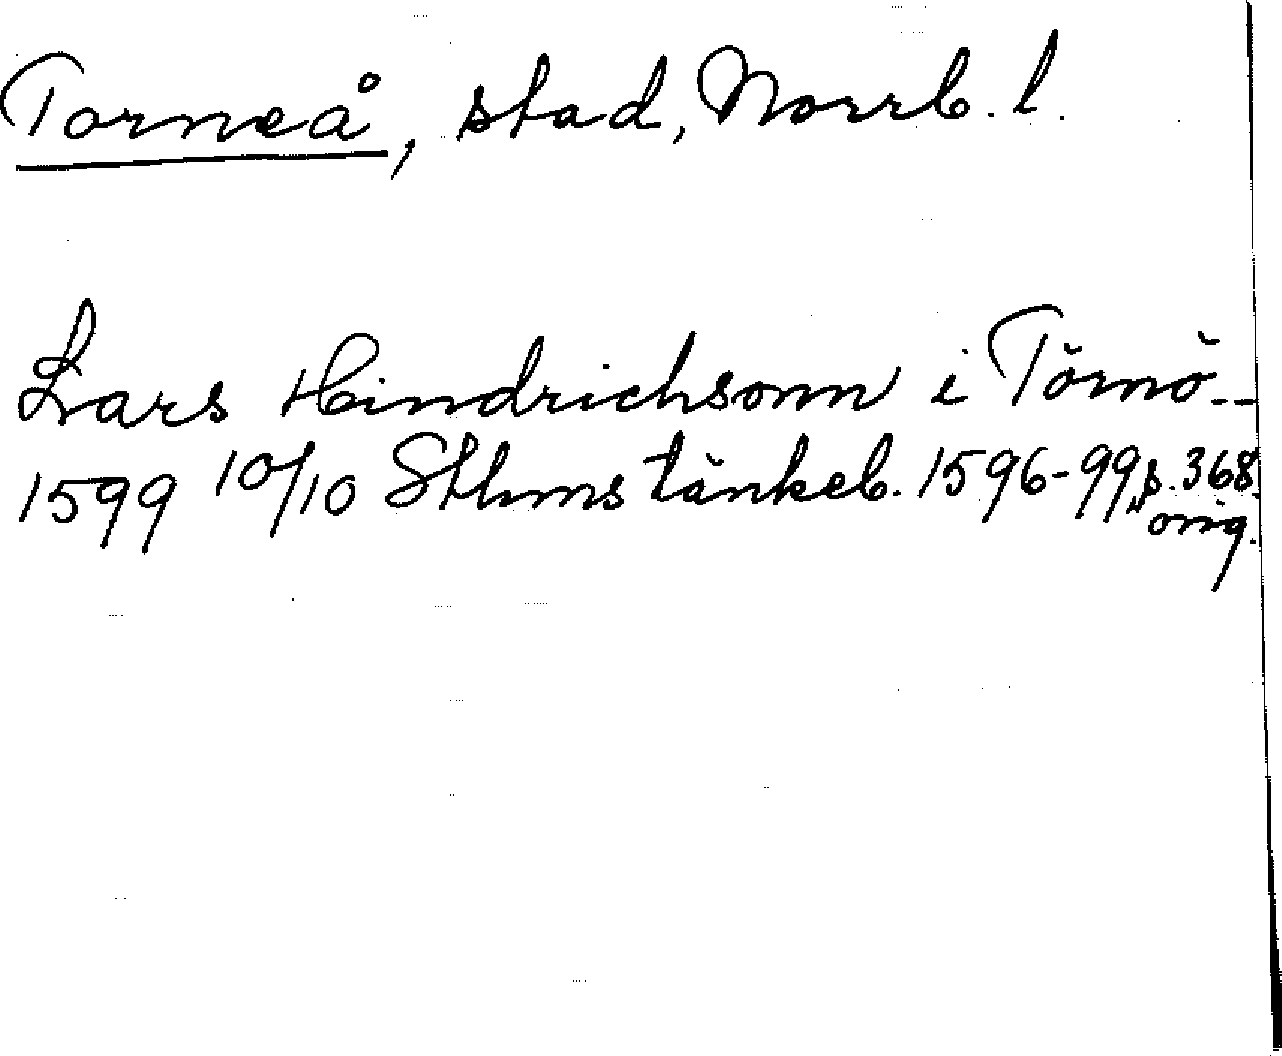 Torneå, stad, Norrb. l.
Lars Hindrichsonn i Törnö--
1599 10/10 Sthms tänkeb. 1596-99, s. 368.
orig.